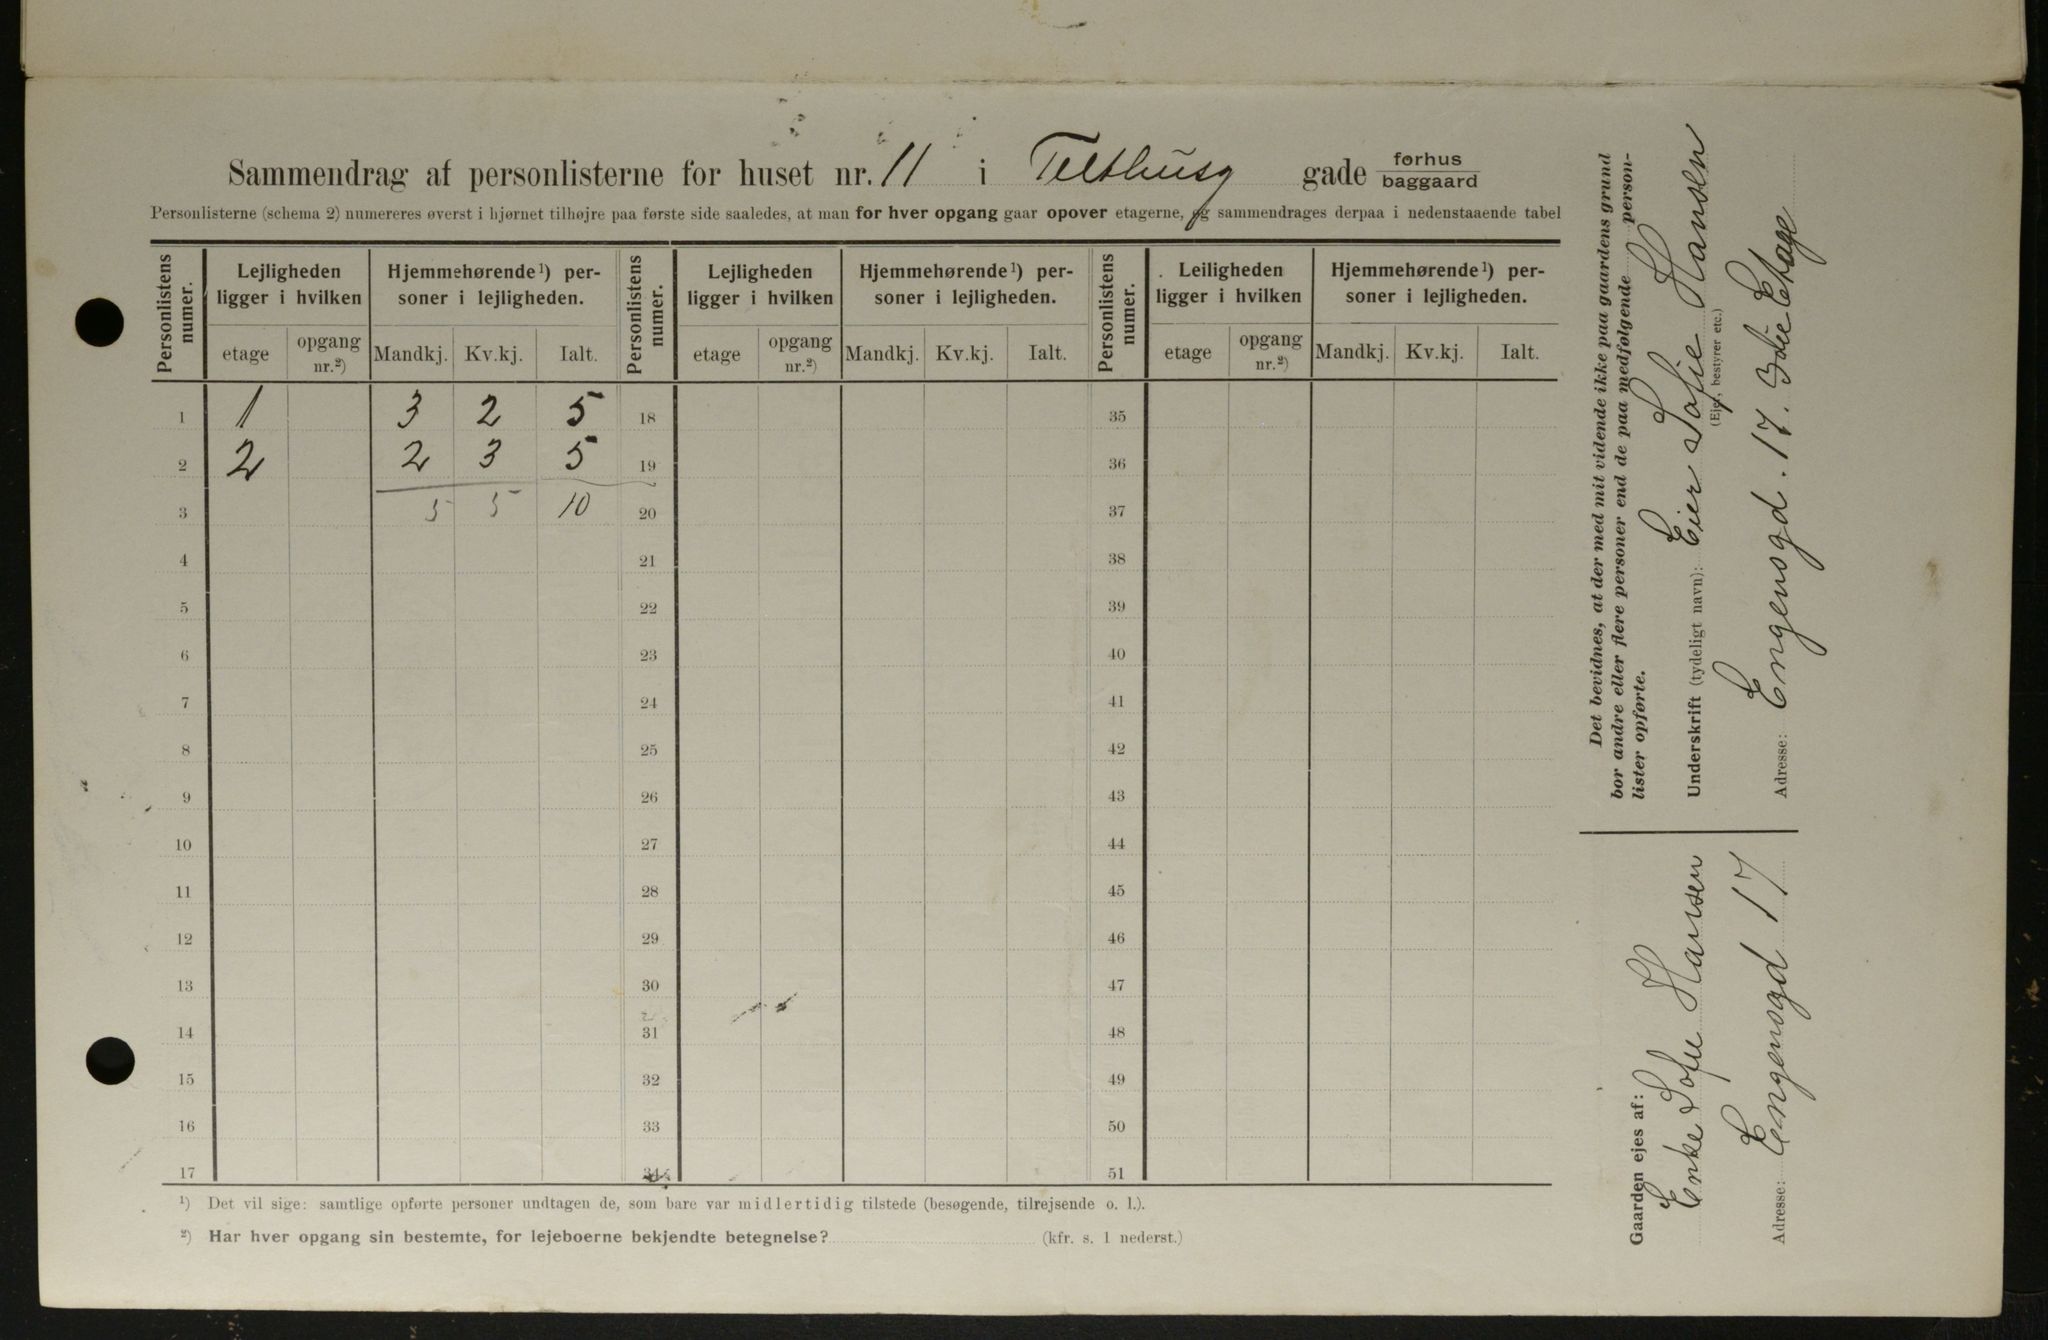 Sammendrag af personlisterne for huset nr. 11 i Telthusg gade forhus baggaard
Personlisterne (schema 2) numereres øverst i hjørnet tilhøjre paa første side saaledes, at man for hver opgang gaar opover etagerne, og sammendrages derpaa i nedenstaaende tabel
Personlistens numer. Lejligheden ligger i hvilken Hjemmehørende¹) personer i lejligheden. Personlistens numer. Lejligheden ligger i hvilken Hjemmehørende¹) personer i lejligheden. Personlistens numer. Leiligheden ligger i hvilken Hjemmehørende¹) personer i lejligheden.
etage opgang nr.²) Mandkj. Kv.kj. Ialt. etage opgang nr.²) Mandkj. Kv.kj. Ialt. etage opgang nr.²) Mandkj. Kv.kj. Ialt.
1 1 3 2 5 18 35
2 2 2 3 5 19 36
3 5 5 10 20 37
4 21 38
5 22 39
6 23 40
7 24 41
8 25 42
9 26 43
10 27 44
11 28 45
12 29 46
13 30 47
14 31 48
15 32 49
16 33 50
17 34 51
¹) Det vil sige: samtlige opførte personer undtagen de, som bare var midlertidig tilstede (besøgende, tilrejsende o. l.).
²) Har hver opgang sin bestemte, for lejeboerne bekjendte betegnelse? (kfr. s. 1 nederst.)
Det bevidnes, at der med mit vidende ikke paa gaardens grund
bor andre eller flere personer end de paa medfølgende person-
lister opførte.
Underskrift (tydeligt navn): Eier Sofie Hansen
(Ejer, bestyrer etc.)
Adresse: Engensgd. 17. 3die Etage
Gaarden ejes af:
Enke Sofie Hansen
Adresse: Engensgd 17